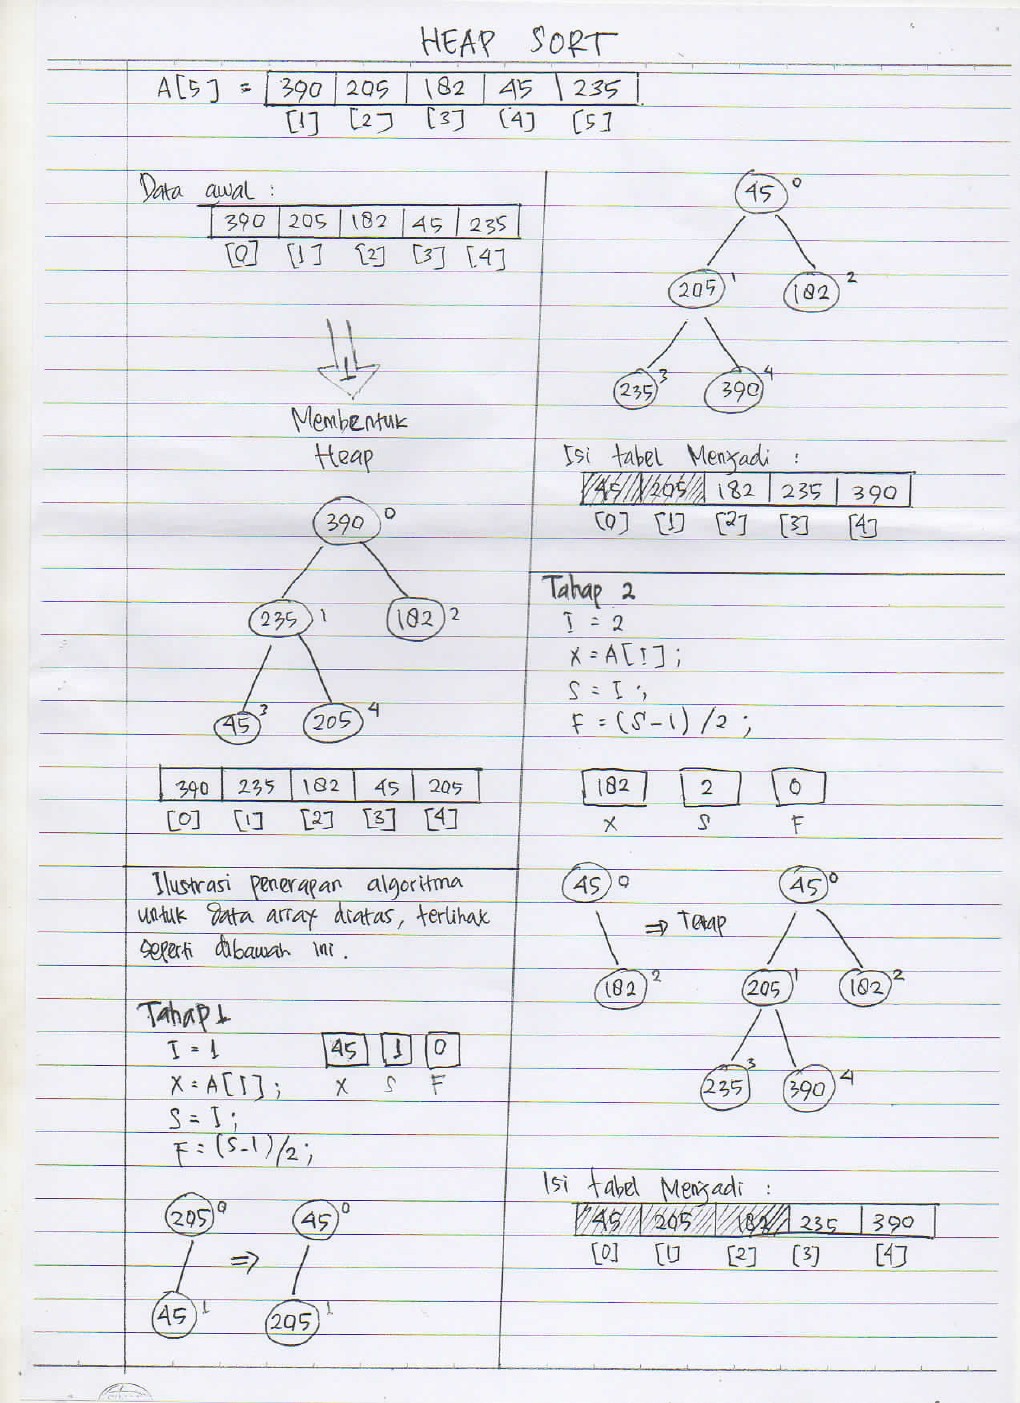 HEAP SORT
A[5] = 390 205 182 45 235
[1] [2] [3] [4] [5]
Data awal :
390 205 182 45 235
[0] [1] [2] [3] [4]
Membentuk
Heap
390 0
235 1 182 2
45 3 205 4
390 235 182 45 205
[0] [1] [2] [3] [4]
Ilustrasi penerapan algoritma
untuk data array diatas, terlihat
seperti dibawah ini.
Tahap 1
I = 1 45 1 0
X = A[I]; X S F
S = I;
F = (S-1)/2;
205 0 ⇒ 45 0
45 1 205 1
45 0
205 1 182 2
235 3 390 4
Isi tabel Menjadi :
45 205 182 235 390
[0] [1] [2] [3] [4]
Tahap 2
I = 2
X = A[I];
S = I;
F = (S-1)/2;
182 2 0
X S F
45 0 ⇒ Tetap 45 0
182 2 205 1 182 2
235 3 390 4
Isi tabel Menjadi :
45 205 182 235 390
[0] [1] [2] [3] [4]